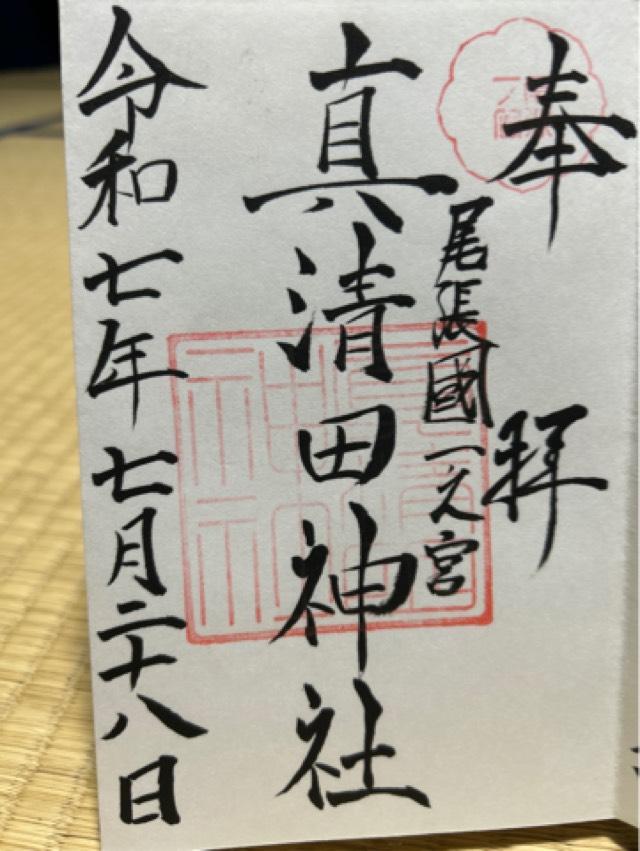 奉拝
尾張國一之宮
真清田神社
令和七年七月二十八日